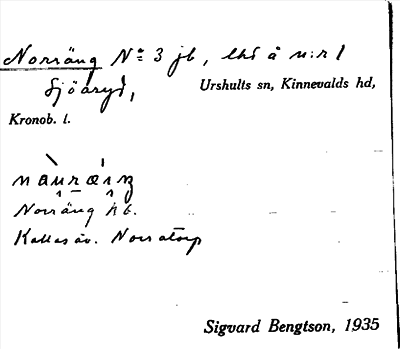 Norräng No 3 jb, lhs å n:r 1
Sjöaryd,
Urshults sn, Kinnevalds hd,
Kronob. l.
Norräng hb.
Kallas äv. Norratorp
Sigvard Bengtson, 1935